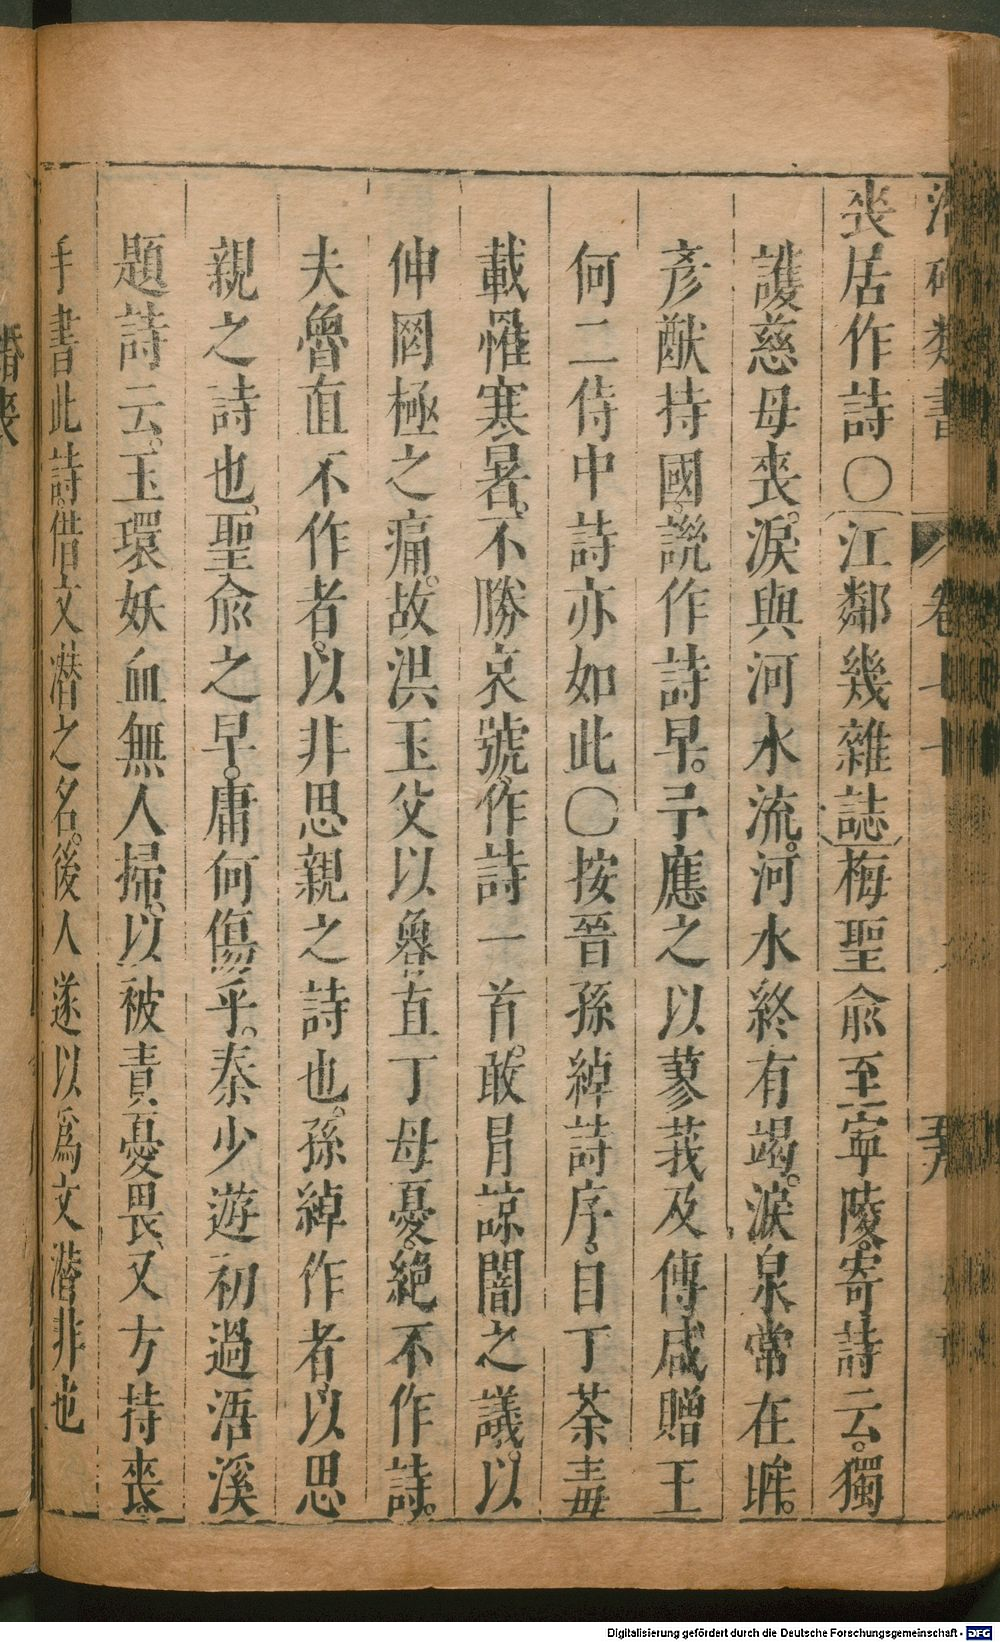 喪居作詩○江鄰幾雜誌梅聖俞至寧陵。寄詩云。獨
護慈母喪。淚與河水流。河水終有竭。淚泉常在眸。
彥猷持國。説作詩早。予應之以蓼莪及傅咸贈王
何二侍中詩亦如此○按晉孫綽詩序。自丁荼毒
載罹寒暑。不勝哀號。作詩一首。敢冒諒闇之議。以
伸罔極之痛。故洪玉父以魯直丁母憂。絕不作詩。
夫魯直不作者。以非思親之詩也。孫綽作者以思
親之詩也。聖俞之早。庸何傷乎。秦少遊初過浯溪
題詩云。玉環妖血無人掃。以被責憂畏、又方持喪。
手書此詩。借文潛之名。後人遂以爲文潛非也
類書
卷
婚喪
Digitalisierung gefördert durch die Deutsche Forschungsgemeinschaft - DFG